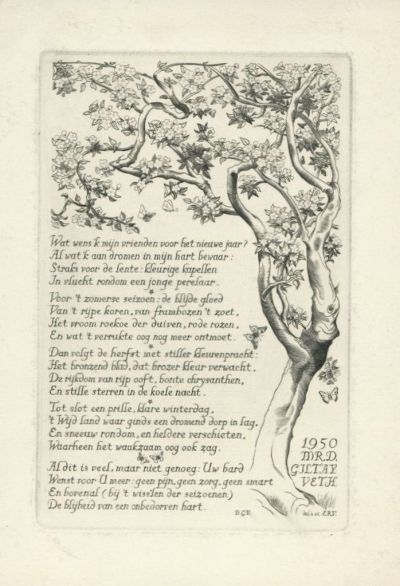 Wat wens 'k mijn vrienden voor het nieuwe jaar?
Al wat 'k aan dromen in mijn hart bewaar:
Straks voor de lente: kleurige kapellen
In vlucht rondom een jonge perelaar.
Voor 't zomerse seizoen: de blijde gloed
Van 't rijpe koren, van frambozen 't zoet,
Het vroom roekoe der duiven, rode rozen,
En wat 't verrukte oog nog meer ontmoet.
Dan volgt de herfst met stiller kleurenpracht:
Het bronzend blad, dat brozer kleur verwacht,
De rijkdom van rijp ooft, bonte chrysanthen,
En stille sterren in de koele nacht.
Tot slot een prille, klare winterdag,
't Wijd land waar ginds een dromend dorp in lag,
En sneeuw rondom, en heldere verschieten,
Waarheen het waakzaam oog ook zag.
Al dit is veel, maar niet genoeg: Uw bard
Wenst voor U meer: geen pijn, geen zorg, geen smart
En bovenal (bij 't wisselen der seizoenen)
De blijheid van een onbedorven hart.
1950
M.R.D.
GILTAY
VETH.
D.G.V.